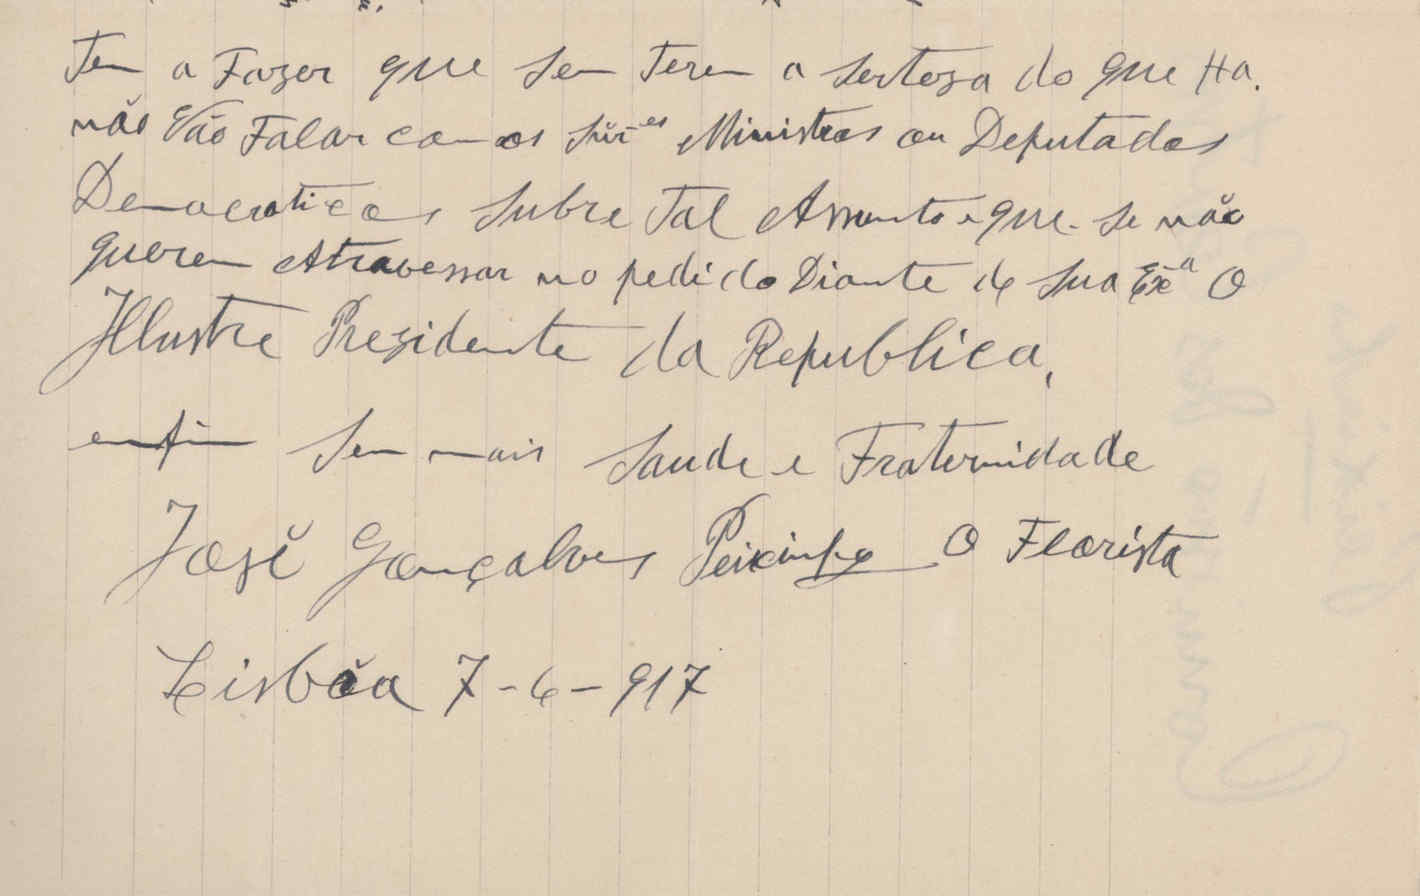 Tem a Fazer que sem Terem a serteza do que Ha.
não Vão Falar com os Snr̃es Ministros ou Deputados
Democraticos Subre Tal Assunto e que se não
querem Atravessar no pedido Diante de Sua Exª O
Illustre Presidente da Republica,
enfim Sem mais Saude e Fraternidade
José Gonçalves Peixinho O Florista
Lisbôa 7-6-917